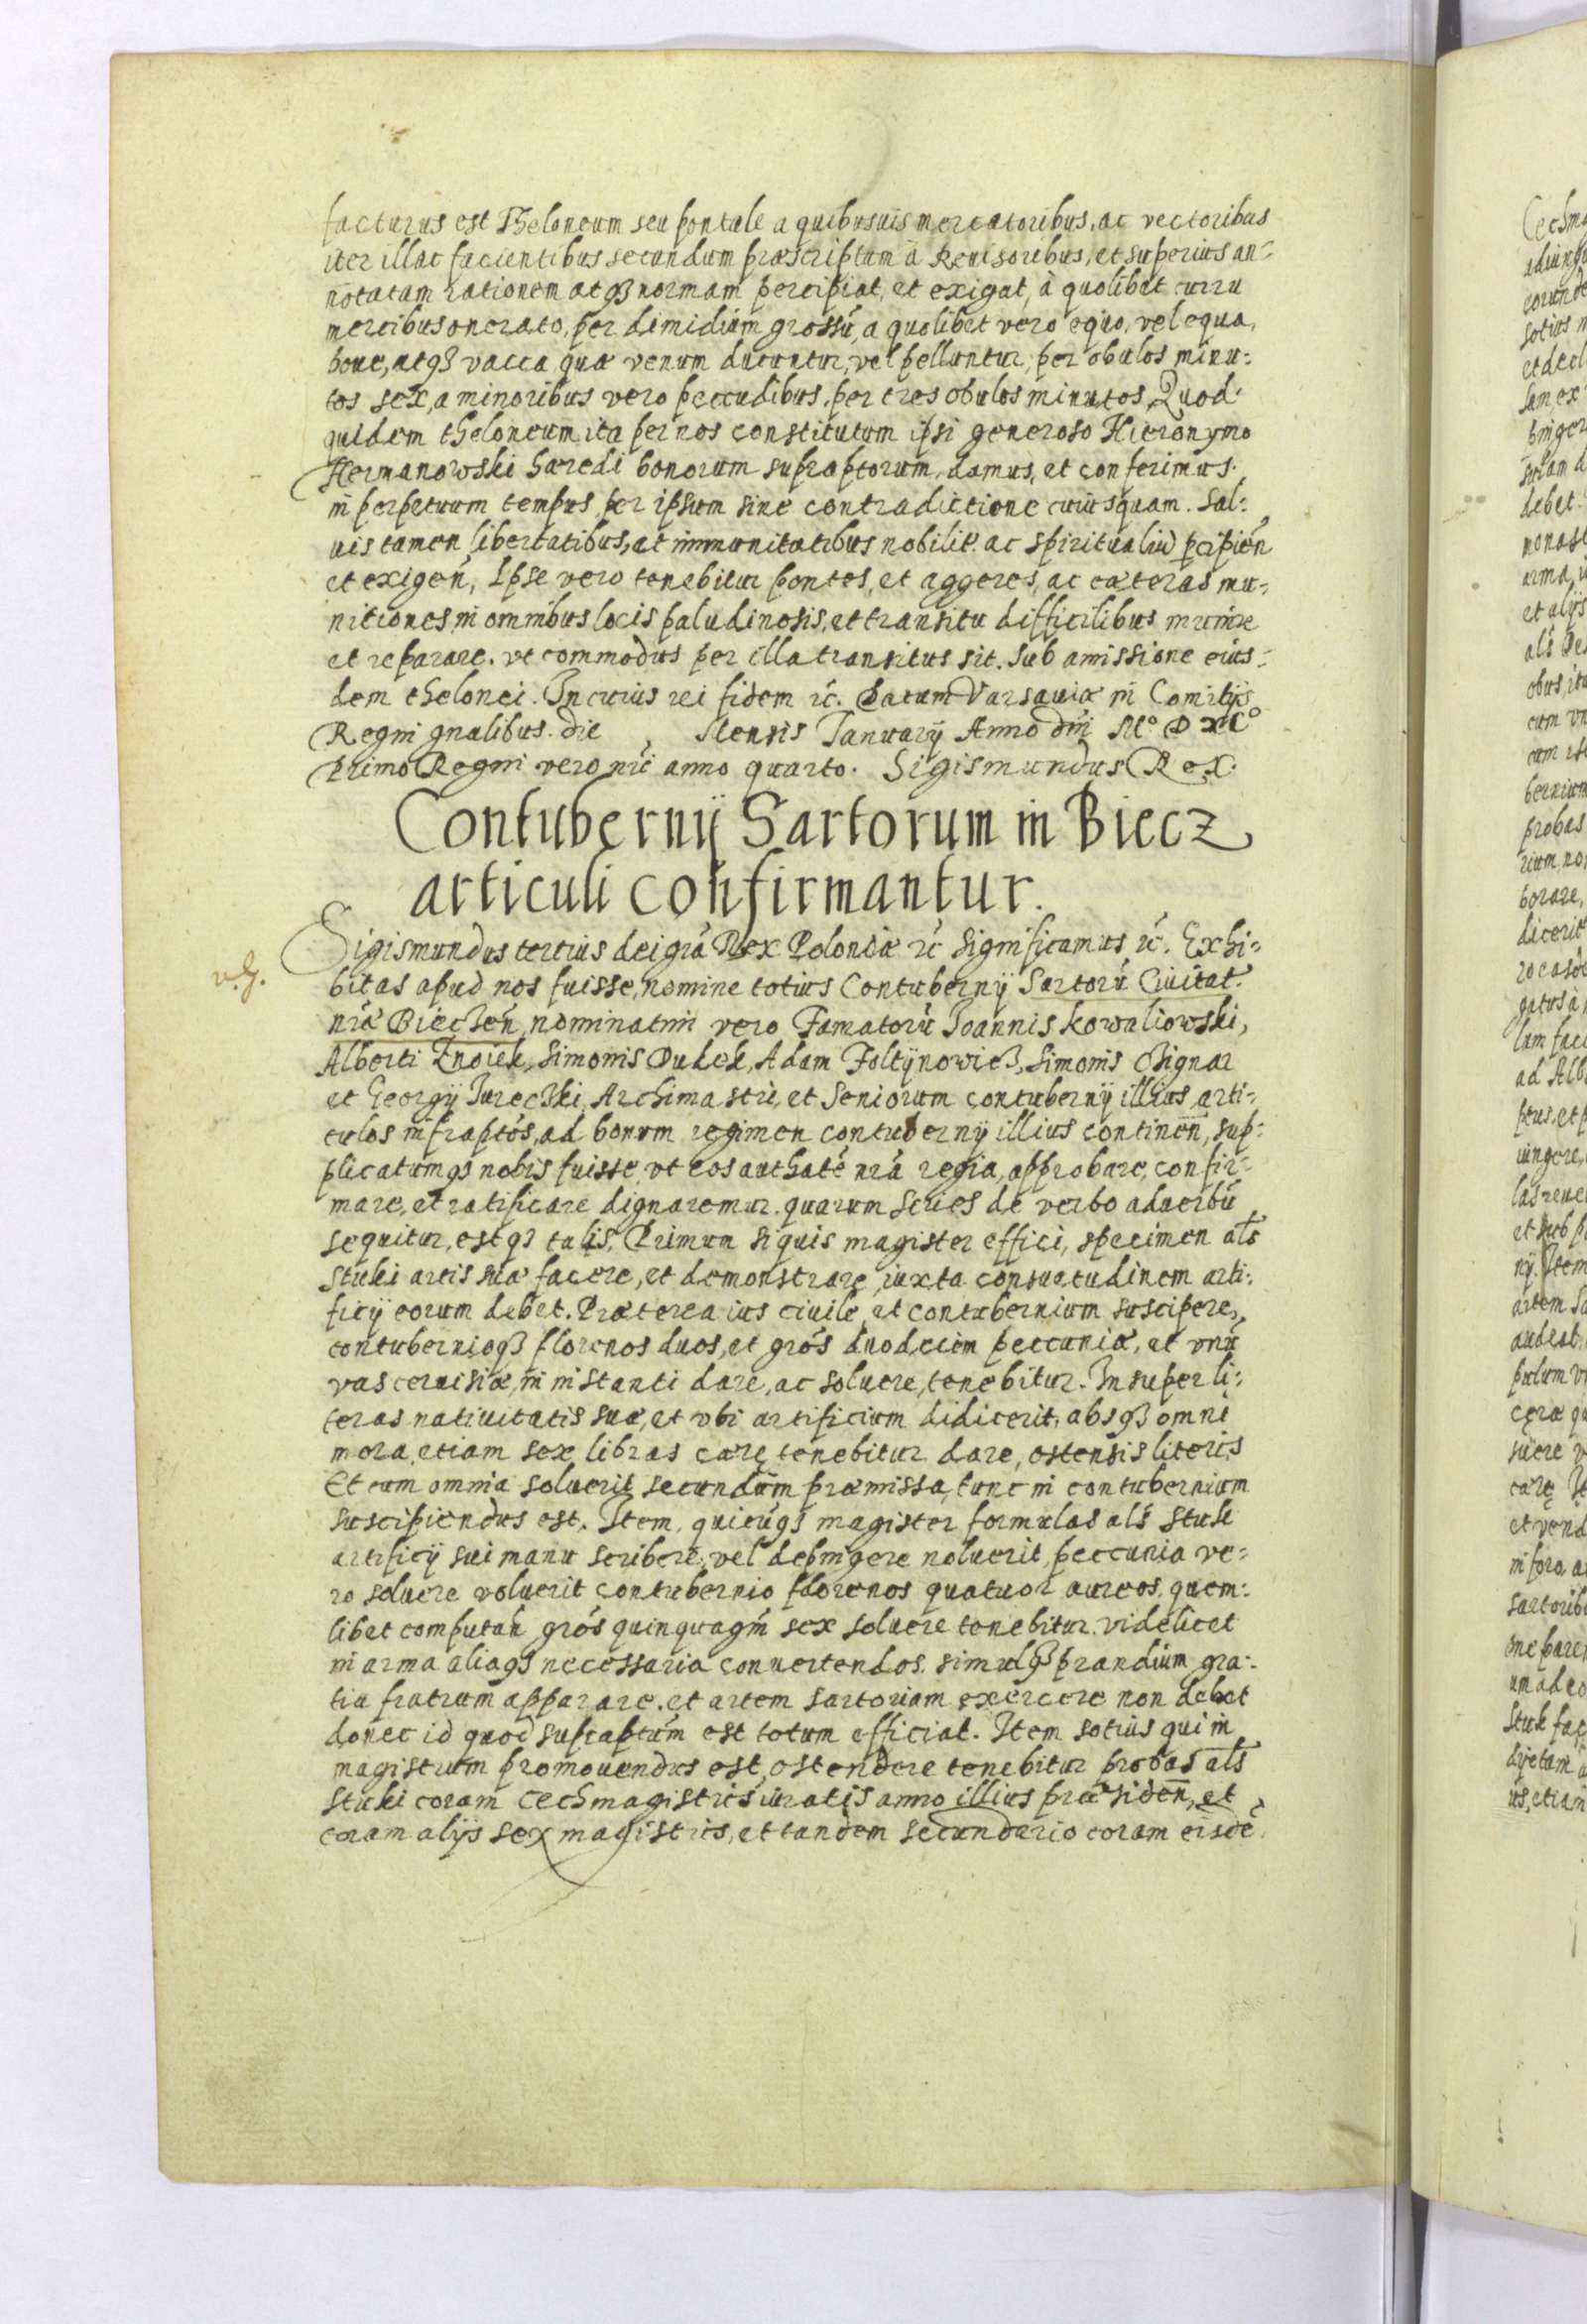 facturus est Theloneum seu pontale a quibusuis mercatoribus, ac vectoribus
iter illac facientibus secundum præscriptum à Reuisoribus, et superius an=
notatam rationem atqȝ normam percipiat, et exigat, à quolibet curru
mercibus onerato, per dimidium grossũ, a quolibet vero equo, vel equa,
boue, atqȝ vacca, quæ venum ducuntur, vel pelluntur, per obulos minu=
tos sex, a minoribus vero peccudibus, per tres obulos minutos, Quod
quidem theloneum, ita per nos constitutum ipsi generoso Hieronymo
Hermanowski hæredi bonorum supraptorum, damus, et conferimus
in perpetuum tempus per ipsum sine contradictione cuiusquam. Sal=
uis tamen libertatibus, et immunitatibus nobilit. ac spiritualiũ pcipień
et exigeń, Ipse vero tenebitur pontes, et aggeres, ac cæteras mu=
nitiones, in omnibus locis paludinosis, et transitu difficilibus munire
et reparare. vt commodus per illa transitus sit. Sub amissione eius=
dem thelonei. In cuius rei fidem ꝛc. Datum Varsauiæ in Comitijs
Regni gnalibus. die , Mensis Ianuarij Anno dńi M° D XC°
Primo Regni vero nri anno quarto. Sigismundus Rex.
Contubernij Sartorum in Biecz
articuli confirmantur.
Sigismundus tertius dei gra Rex Poloniæ ꝛc Significamus ꝛc. Exhi=
v. g.
bitas apud nos fuisse, nomine totius Contubernij Sartorũ Ciuitat.
nræ Biecheń, nominatim vero Famatorũ Joannis Kowaliowski,
Alberti Znoiek, Simonis Dudek, Adam Foltÿnowicȝ, Simonis Chignar
et Georgij Jurecȝki, Archimastrũ, et Seniorum contubernij illius, arti=
culos infraptos, ad bonum regimen contubernij illius continen, sup=
plicatumqȝ nobis fuisse, vt eos authate nra regia, approbare, confir=
mare, et ratificare dignaremur. quarum series de verbo ad verbũ
sequitur, estqȝ talis. Primum si quis magister effici, specimen als
stuki artis suæ facere, et demonstrare, iuxta consuetudinem arti=
ficij eorum debet. Præterea ius ciuile, et contubernium suscipere,
contubernioqȝ florenos duos, et gros duodecim peccuniæ, et vnũ
vas ceruisiæ, in instanti dare, ac soluere, tenebitur. Insuper li=
teras natiuitatis suæ, et vbi artificium didicerit, absqȝ omni
mora, etiam sex libras cerę tenebitur dare, ostensis literis
Et cum omnia soluerit secundum præmissa, tunc in contubernium
suscipiendus est. Item, quicũqȝ magister formulas als stuk
artificij sui manu scribere, vel depingere noluerit, peccunia ve=
ro soluere voluerit contubernio florenos quatuor aureos, quem=
libet computań gros quinquagm sex soluere tenebitur. videlicet
in arma aliaqȝ necessaria conuertendos. simulqȝ prandium gra=
tia fratrum apparare. et artem sartoriam exercere non debet
donec id quod supraptum est totum efficiat. Item sotius qui in
magistrum promouendus est, ostendere tenebitur probas als
stuki coram cechmagistris iuratis anno illius præsideń, et
coram alijs sex magistris, et tandem secundario coram eisdẽ